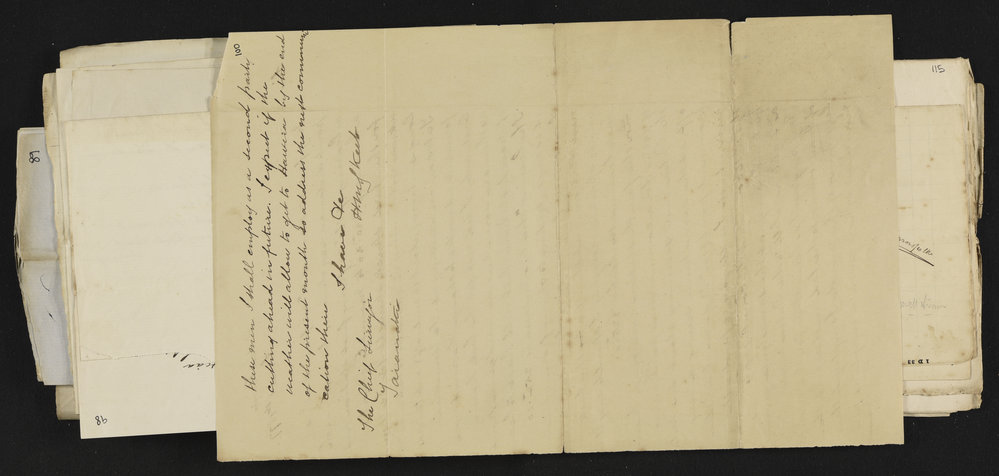 100
these men I shall employ as a second party
cutting ahead in future. I expect if the
weather will allow to get to Hawera by the end
of the present month so address the next communi
cation there
I have &c
H M Skeet
The Chief Surveyor
Taranaki
89
98
115
1 D 33